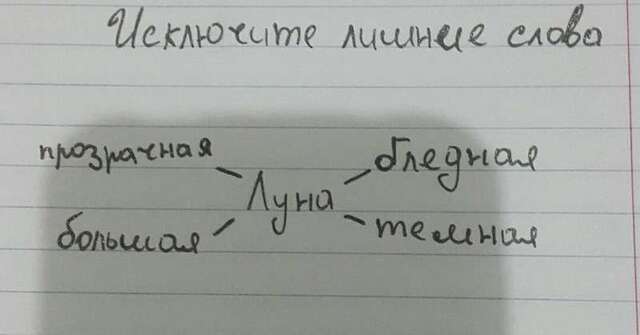 Исключите лишние слова
прозрачная бледная
Луна
большая темная